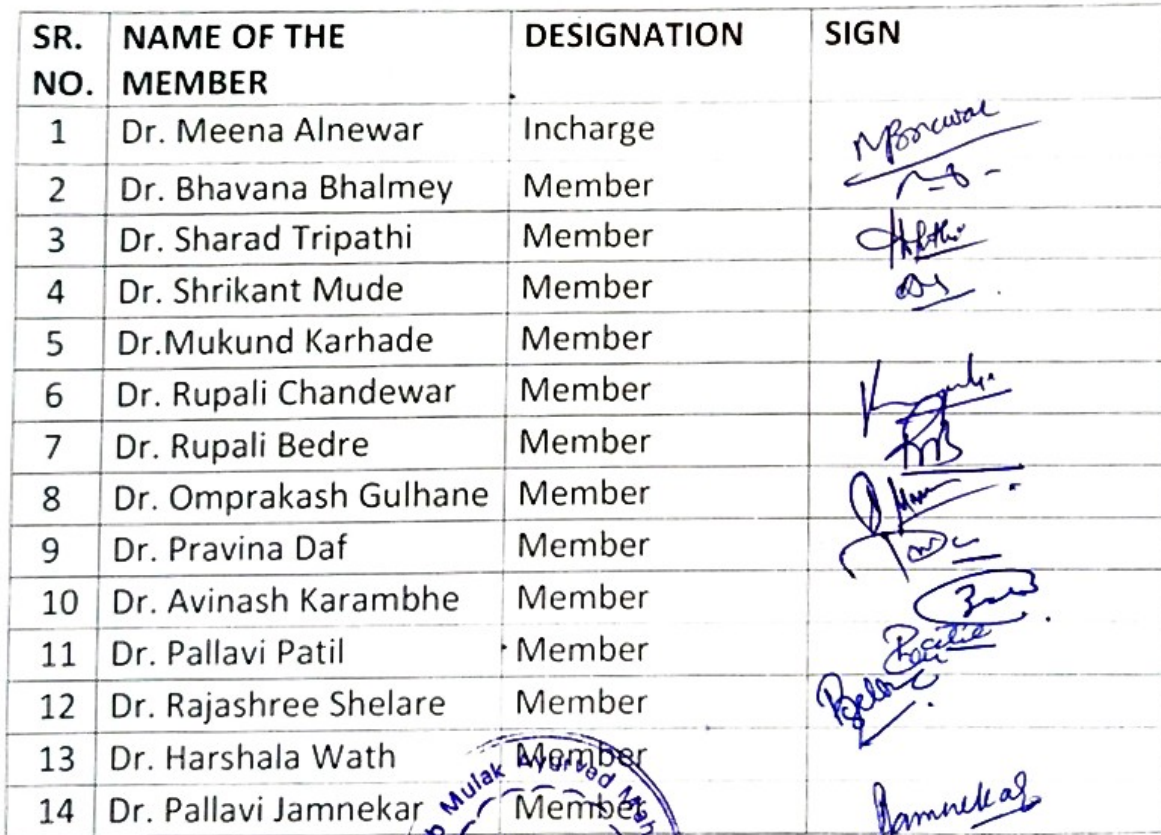 SR. NO. NAME OF THE MEMBER DESIGNATION SIGN
1 Dr. Meena Alnewar Incharge
2 Dr. Bhavana Bhalmey Member
3 Dr. Sharad Tripathi Member
4 Dr. Shrikant Mude Member
5 Dr.Mukund Karhade Member
6 Dr. Rupali Chandewar Member
7 Dr. Rupali Bedre Member
8 Dr. Omprakash Gulhane Member
9 Dr. Pravina Daf Member
10 Dr. Avinash Karambhe Member
11 Dr. Pallavi Patil Member
12 Dr. Rajashree Shelare Member
13 Dr. Harshala Wath Member
14 Dr. Pallavi Jamnekar Member
Mulak Ayurved